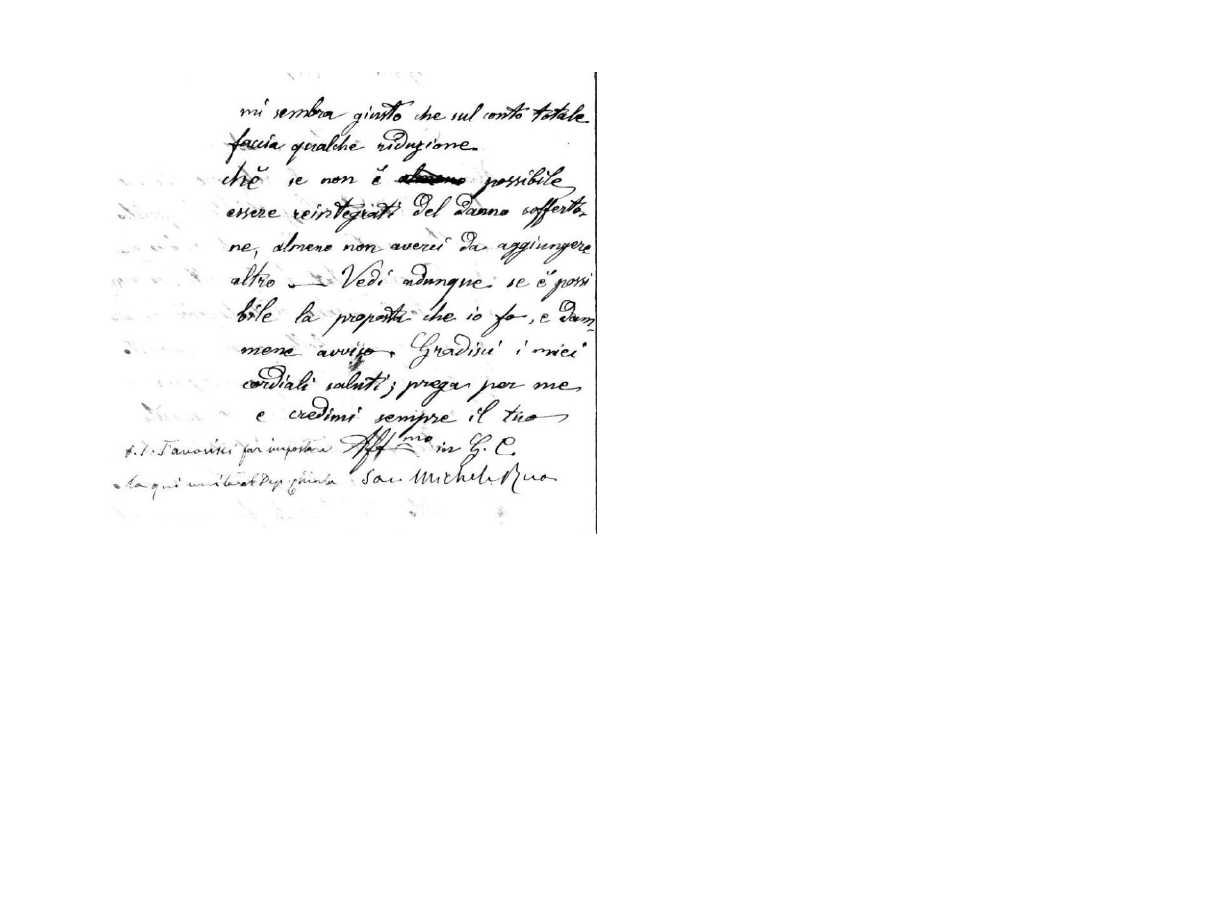 mi sembra giusto che sul conto totale
faccia qualche riduzione.
chè se non è almeno possibile
essere reintegrati del danno sofferto-
ne, almeno non averci da aggiungere
altro — Vedi adunque se è possi
bile la proposta che io fo, e dam-
mene avviso. Gradisci i miei
cordiali saluti; prega per me
e credimi sempre il tuo
Aff.mo in G. C.
Sac. Michele Rua
P.S. Favorisci far impostare
la qui unita al Dep. Ghirla